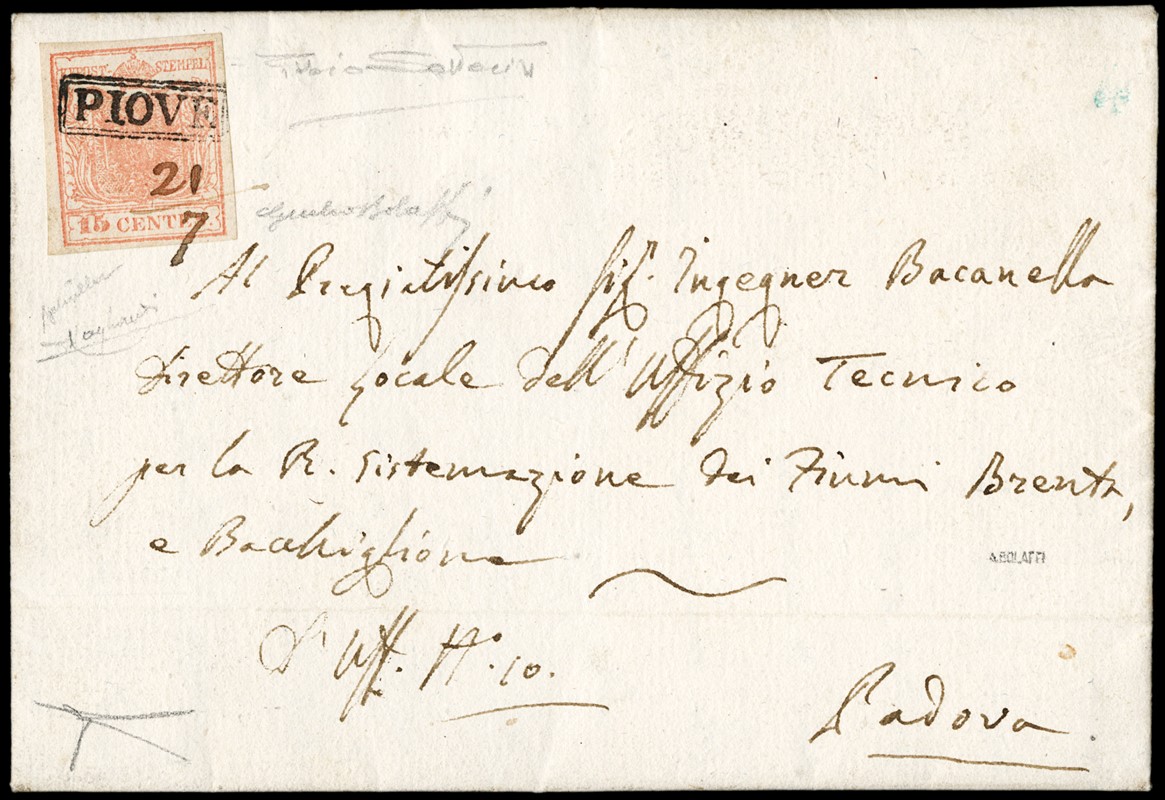 KREUZPOST-STEMPEL
PIOVE
21
7
15 CENTES.
Giulio Bolaffi
Al Pregiatissimo Sig.r Ingegner Bacanella
Direttore Locale dell'Uffizio Tecnico
per la R. Sistemazione dei Fiumi Brenta,
e Bacchiglione
A.BOLAFFI
D' Uff. N.10.
Padova.